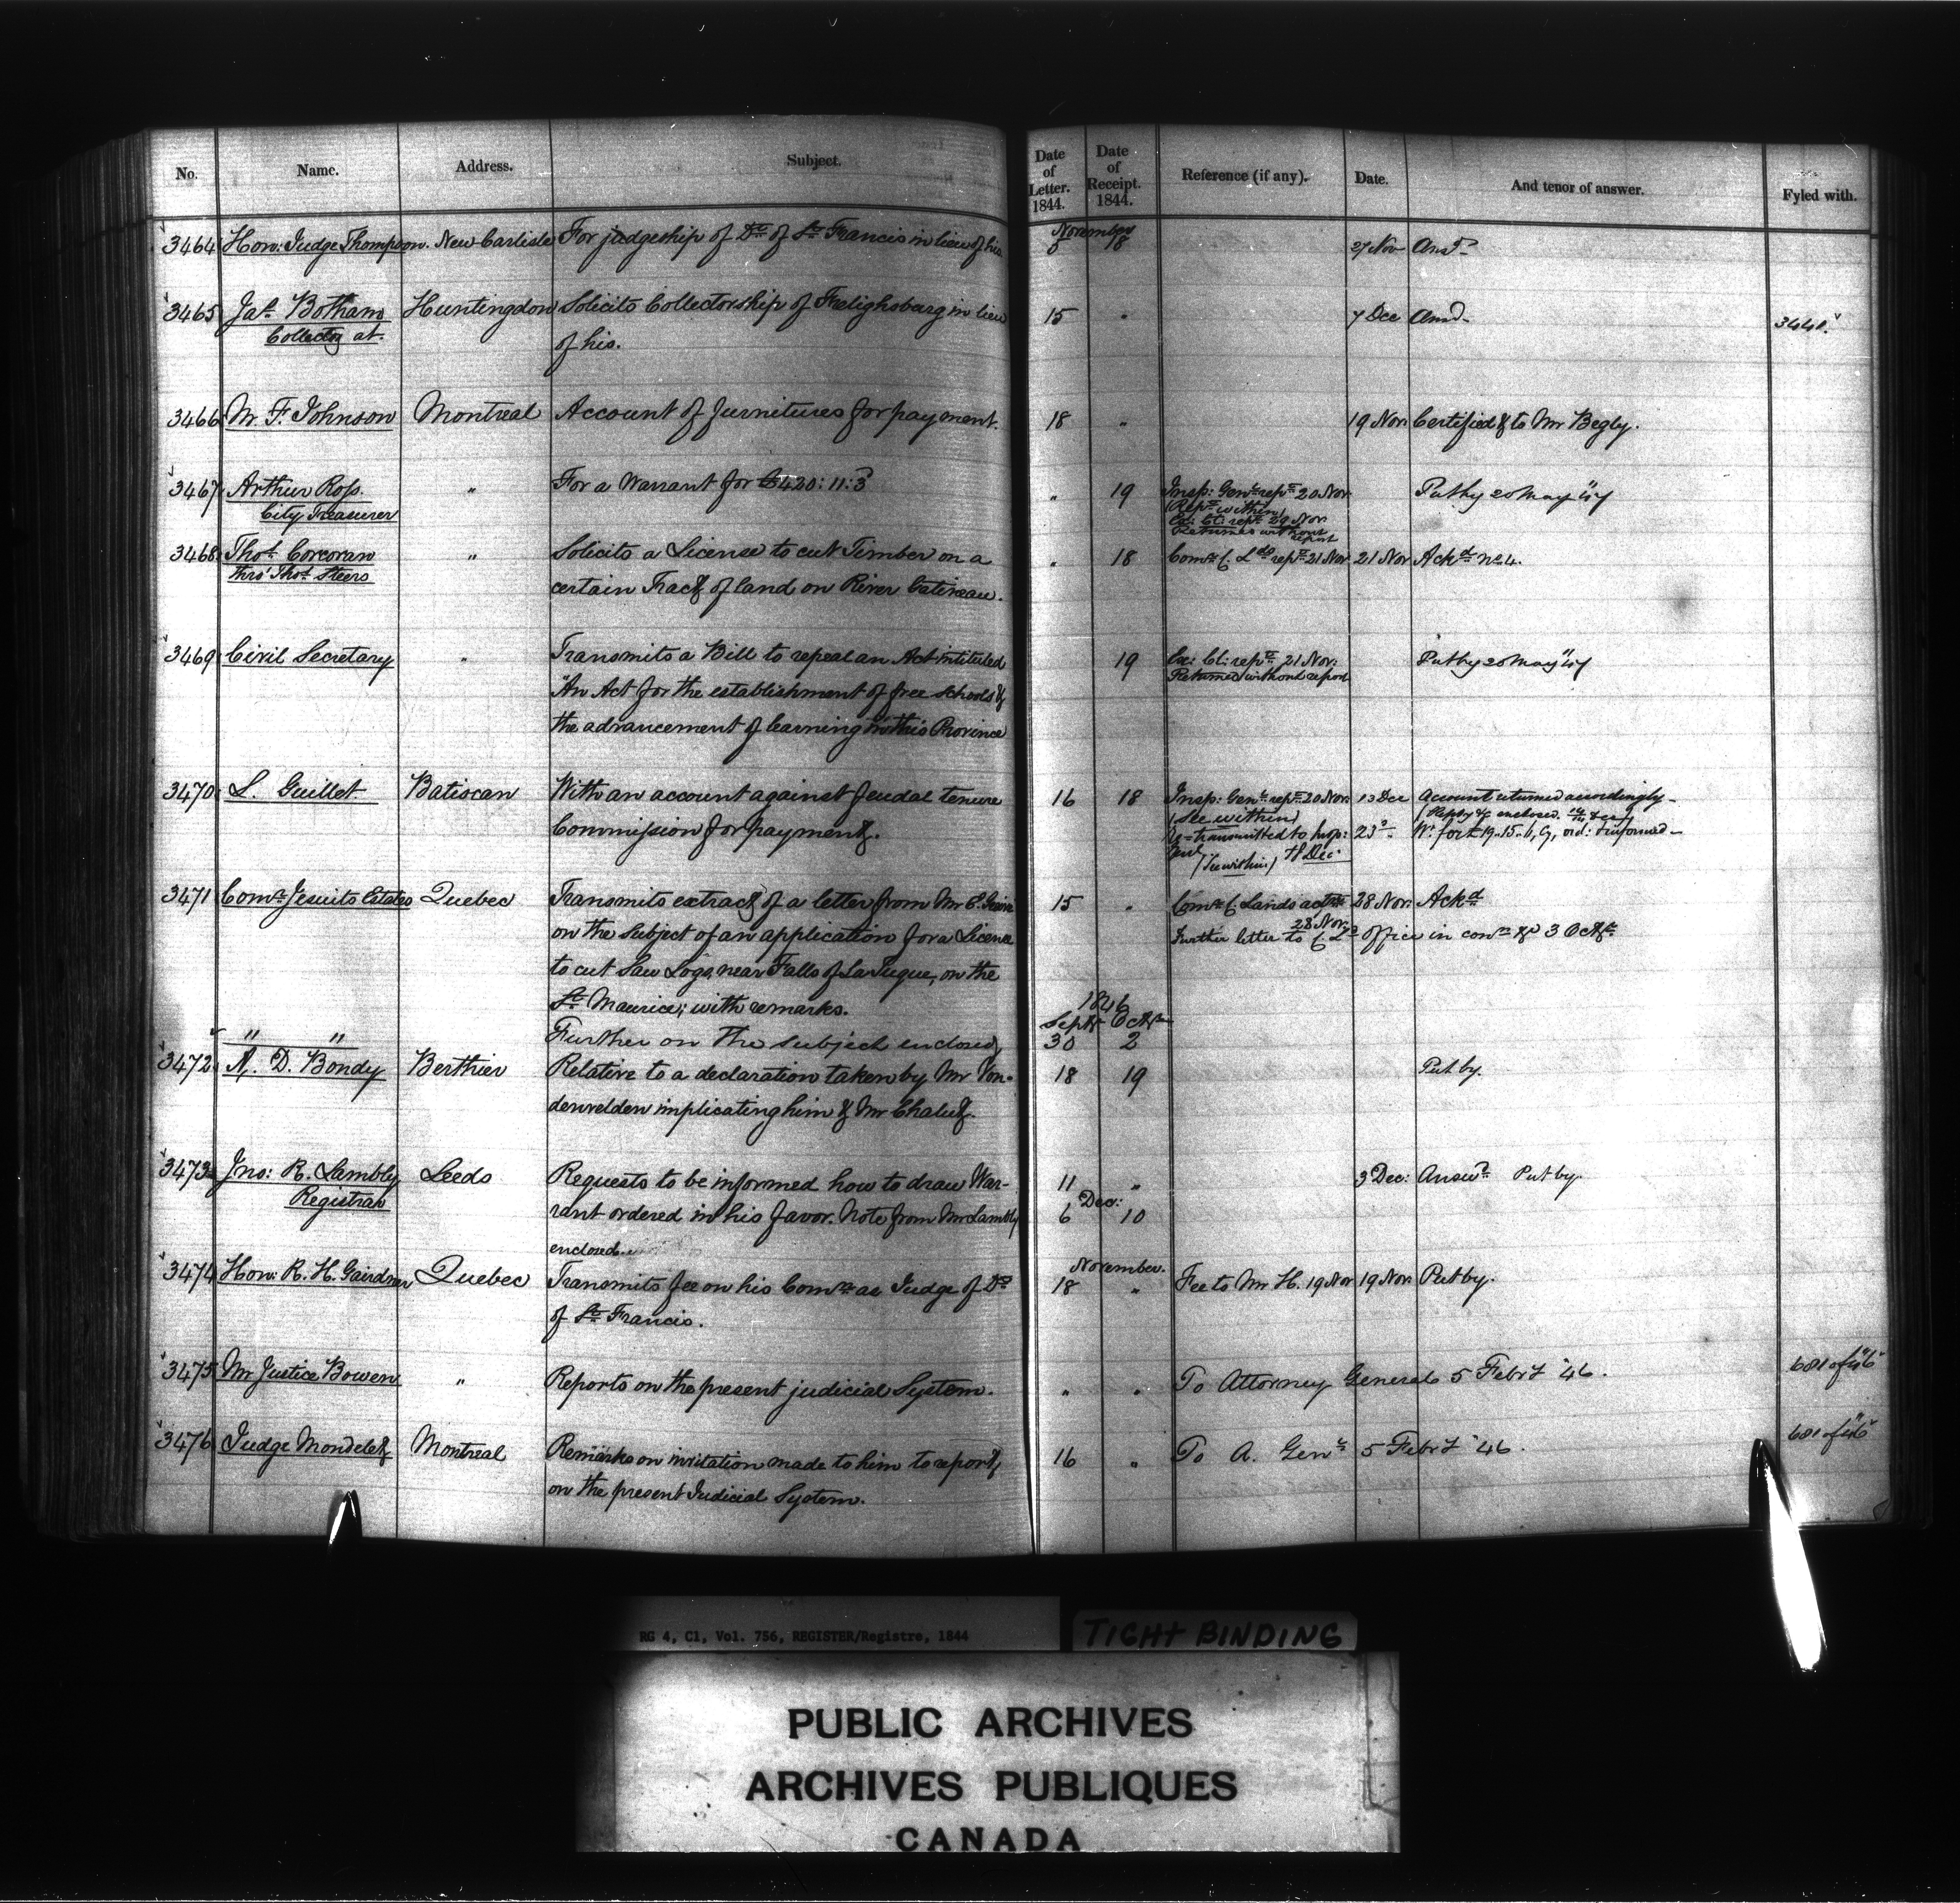 No. Name. Address. Subject. Date of Letter. 1844. Date of Receipt. 1844. Reference (if any). Date. And tenor of answer. Fyled with.
November
3464 Hon: Judge Thompson. New Carlisle For judgeship of Dt of St Francis in lieu of his 5 18 27 Nov Ansd
3465 Jas Botham Huntingdon Solicits Collectorship of Frelighsburg in lieu 15 " 7 Dec Ansd 3441.
Collector at. of his.
3466 M. F. Johnson Montreal Account of furnitures for payment. 18 " 19 Nov Certified & to Mr Begly.
3467 Arthur Ross. " For a Warrant for £420: 11: 3 " 19 Insp: Genl rept 20 Nov Put by 20 May "47
City Treasurer (Rept within)
Ex: Cl: rept 29 Nov
Returned without report
3468 Thos Corcoran " Solicits a License to cut Timber on a " 18 Comr C. Lds rept 21 Nov 21 Nov Ackd no 4.
thro' Thos Steers certain Tract of land on River Gatineau.
3469 Civil Secretary " Transmits a Bill to repeal an Act intituled 19 Ex: Cl: rept 21 Nov: Put by 20 May "47
"An Act for the establishment of free schools & Returned without report
the advancement of learning in this Province
3470 L. Guillet Batiscan With an account against feudal tenure 16 18 Insp: Genl rept 20 Nov: 13 Dec Account returned accordingly
Commission for payment. (See within)
transmitted to Insp: 23 Wt for £19.15.6, Cy, ord: & informed
Genl (See within) 18 Dec:
3471 Comr Jesuits Estates Quebec Transmits extract of a letter from Mr E. Greive 15 " Comr C. Lands 28 Nov: Ackd
on the subject of an application for a License 28 Nov.
Further letter to C. Lds office in conn 3 Octr
to cut Saw Logs, near Falls of La Tuque, on the
St Maurice; with remarks. 1846
Septr Octr
" " Further on the subject enclosed 30 2
3472 A. D. Bondy Berthier Relative to a declaration taken by Mr Von- 18 19 Put by.
denvelden implicating him & Mr Chalut.
3473 Jno: R. Lambly Leeds Requests to be informed how to draw War- 11 " 3 Dec: Answd Put by.
Registrar Dec:
rant ordered in his favor. Note from Mr Lambly 6 10
enclosed.
November.
3474 Hon: R. H. Gairdner Quebec Transmits fee on his Comn as Judge of Dt 18 " Fee to Mr H. 19 Nov 19 Nov: Put by.
of St Francis.
3475 Mr Justice Bowen " Reports on the present judicial System. " " To Attorney General 5 Febry '46. 681 of "46"
3476 Judge Mondelet Montreal Remarks on invitation made to him to report 16 " To A. Genl 5 Febry '46. 681 of "46"
on the present Judicial System.
RG 4, C1, Vol. 756, REGISTER/Registre, 1844
TIGHT BINDING
PUBLIC ARCHIVES
ARCHIVES PUBLIQUES
CANADA